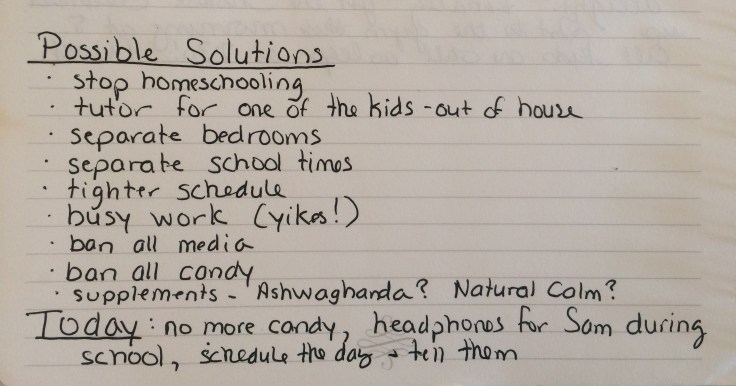 Possible Solutions
· stop homeschooling
· tutor for one of the kids - out of house
· separate bedrooms
· separate school times
· tighter schedule
· busy work (yikes!)
· ban all media
· ban all candy
· supplements - Ashwaghanda? Natural Calm?
Today: no more candy, headphones for Sam during
school, schedule the day + tell them